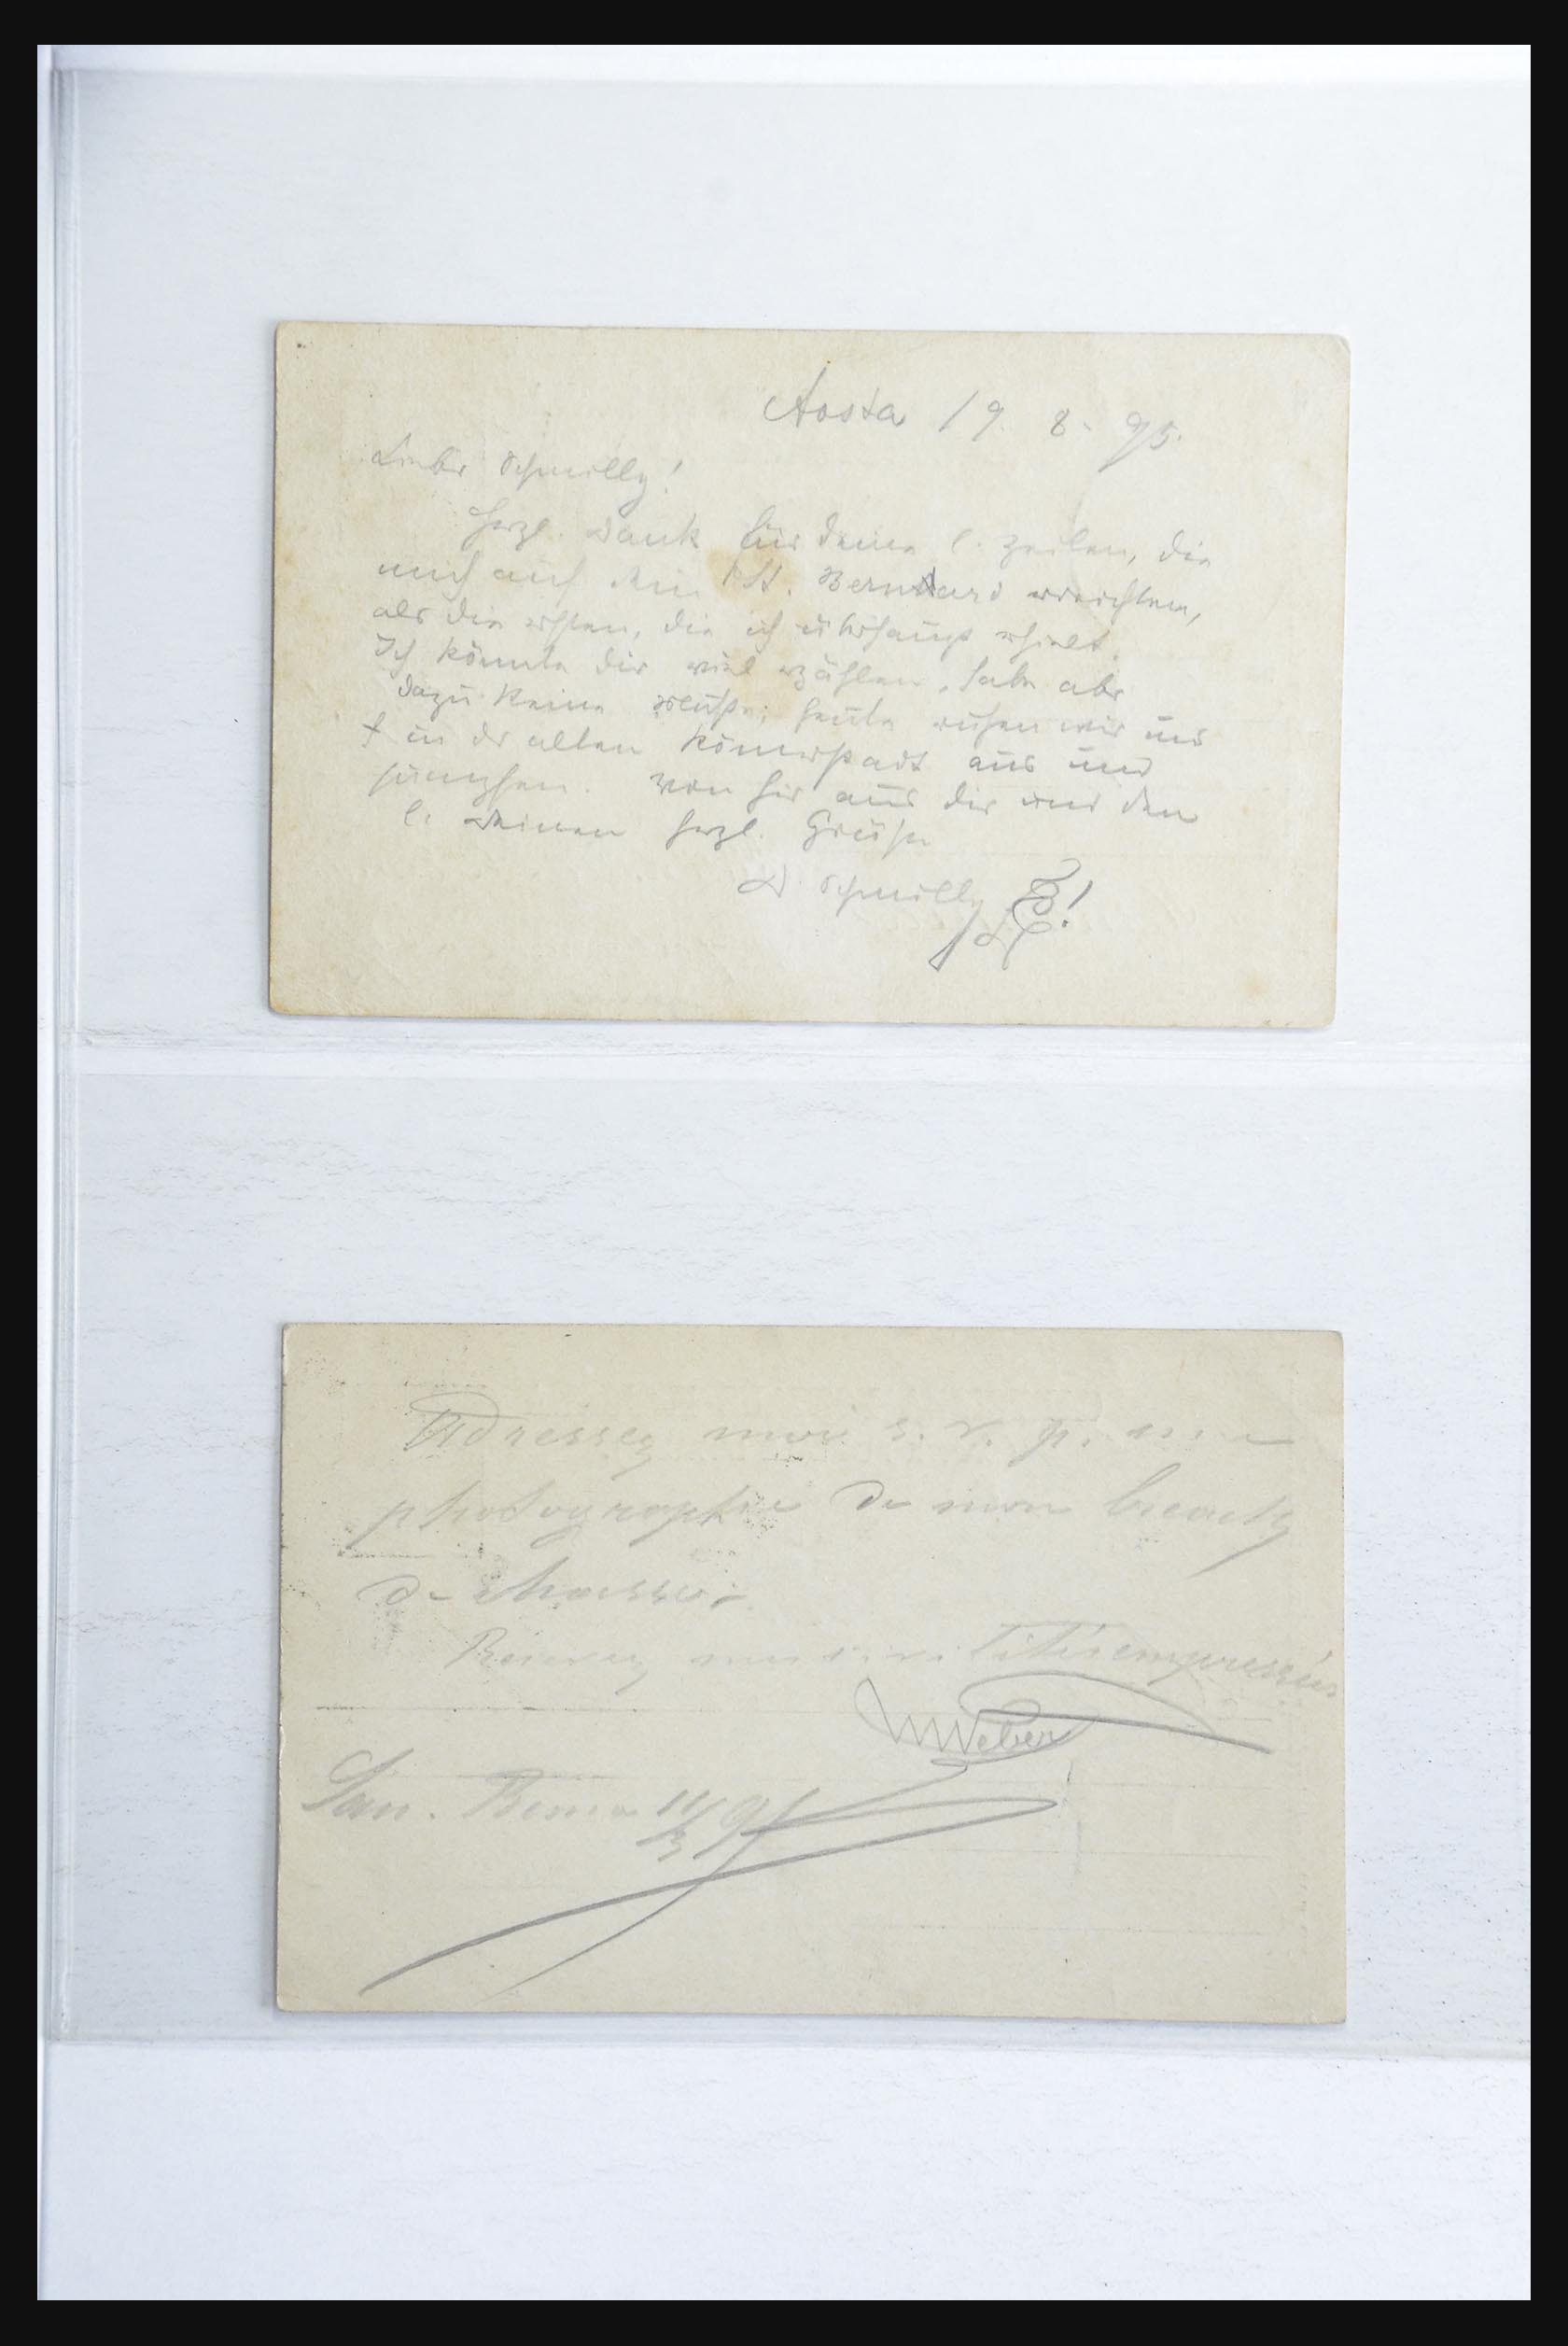 Aosta 19. 8. 95.
Lieber Schmilly!
Herzl. Dank für deine l. Zeilen, die
mich auf dem St. Bernhard erreichten,
als die ersten, die ich überhaupt erhielt.
Ich könnte dir viel erzählen, habe aber
dazu keine Muße; heute ruhen wir uns
in der alten Römerstadt aus und
Von hier aus dir und den
l. Deinen herzl. Grüße
D. Schmilly
Adressez moi s. v. p. une
photographie de mon
de
Recevez
WWeber
San. Remo 11/3 9